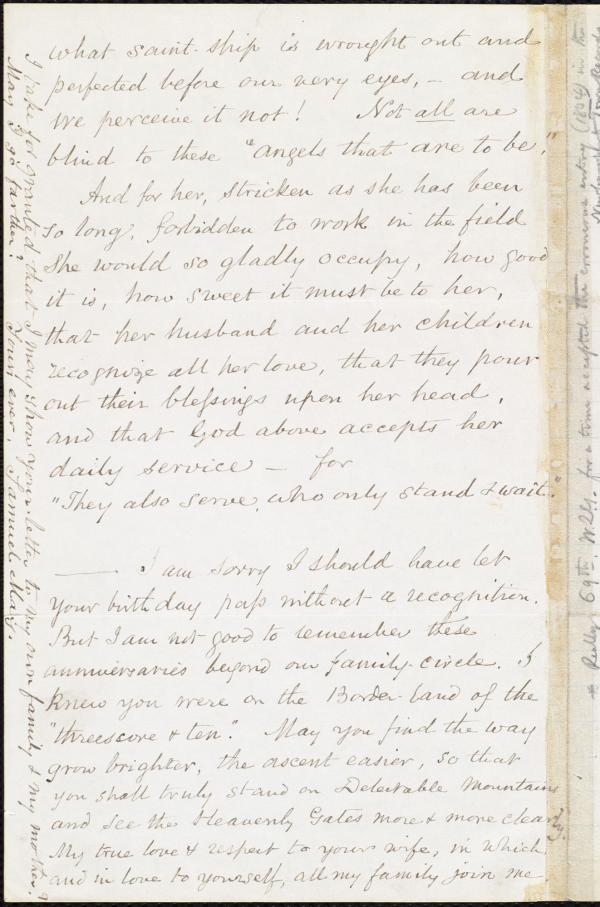 what saint-ship is wrought out and
perfected before our very eyes, - and
we perceive it not! Not all are
blind to these "angels that are to be."
And for her, stricken as she has been
so long, forbidden to work in the field
she would so gladly occupy, how good
it is, how sweet it must be to her,
that her husband and her children
recognize all her love, that they pour
out their blessings upon her head,
and that God above accepts her
daily service — for
"They also serve, who only stand & wait."
— I am sorry I should have let
your birthday pass without a recognition.
But I am not good to remember these
anniversaries beyond our family-circle. I
knew you were on the Border-land of the
"threescore & ten". May you find the way
grow brighter, the ascent easier, so that
you shall truly stand on Delectable Mountains
and see the Heavenly Gates more & more clearly.
My true love & respect to your wife, in which,
and in love to yourself, all my family join me.
I take for granted that I may show your letter to my own family & my mother's
May it go farther? Yours ever, Samuel May.
* Really, 69th. for a time accepted the erroneous entry (1804) in the